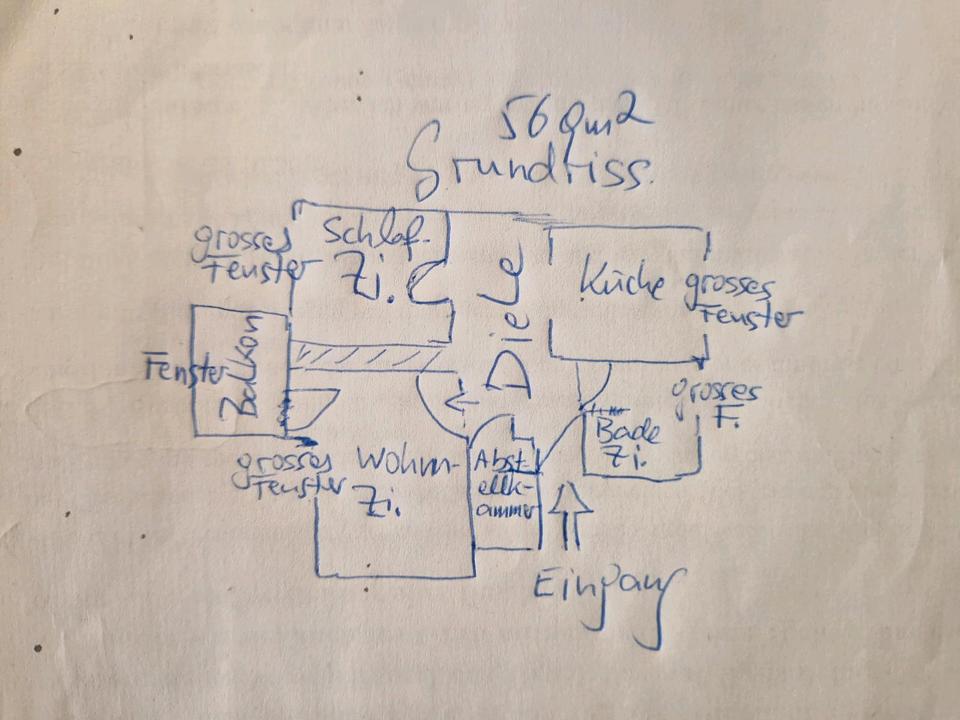 56 qm2
Grundriss.
grosses
Fenster
Schlaf-
Zi.
Diele
Küche
grosses
Fenster
Fenster
Balkon
grosses
F.
Bade
Zi.
grosses
Fenster
Wohn-
Zi.
Abst-
ellk-
ammer
Eingang